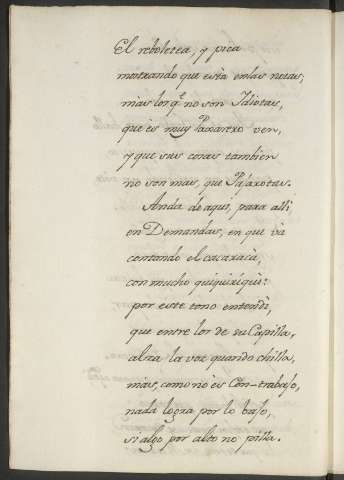 El reboletea, y pica
mostrando que està en las notas,
mas los q.e no son Idiotas,
que ès muy Paxarxo ven,
y que sus cosas tambien
no son mas, que Pajarotas.
Anda de aqui, para alli
en Demandas, en que và
contando el cacaraèà,
con mucho quiquiriquì:
por este tono entendì,
que entre los de su Capilla,
alza la voz quando chilla,
mas, como no ès Con-trabajo,
nada logra por lo bajo,
si algo por alto no pilla.